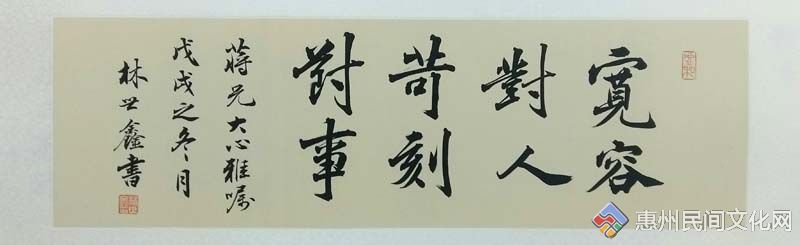 寬容
對人
苛刻
對事
蔣兄大心雅囑
戊戌之冬月
林世鑫書
惠州民间文化网